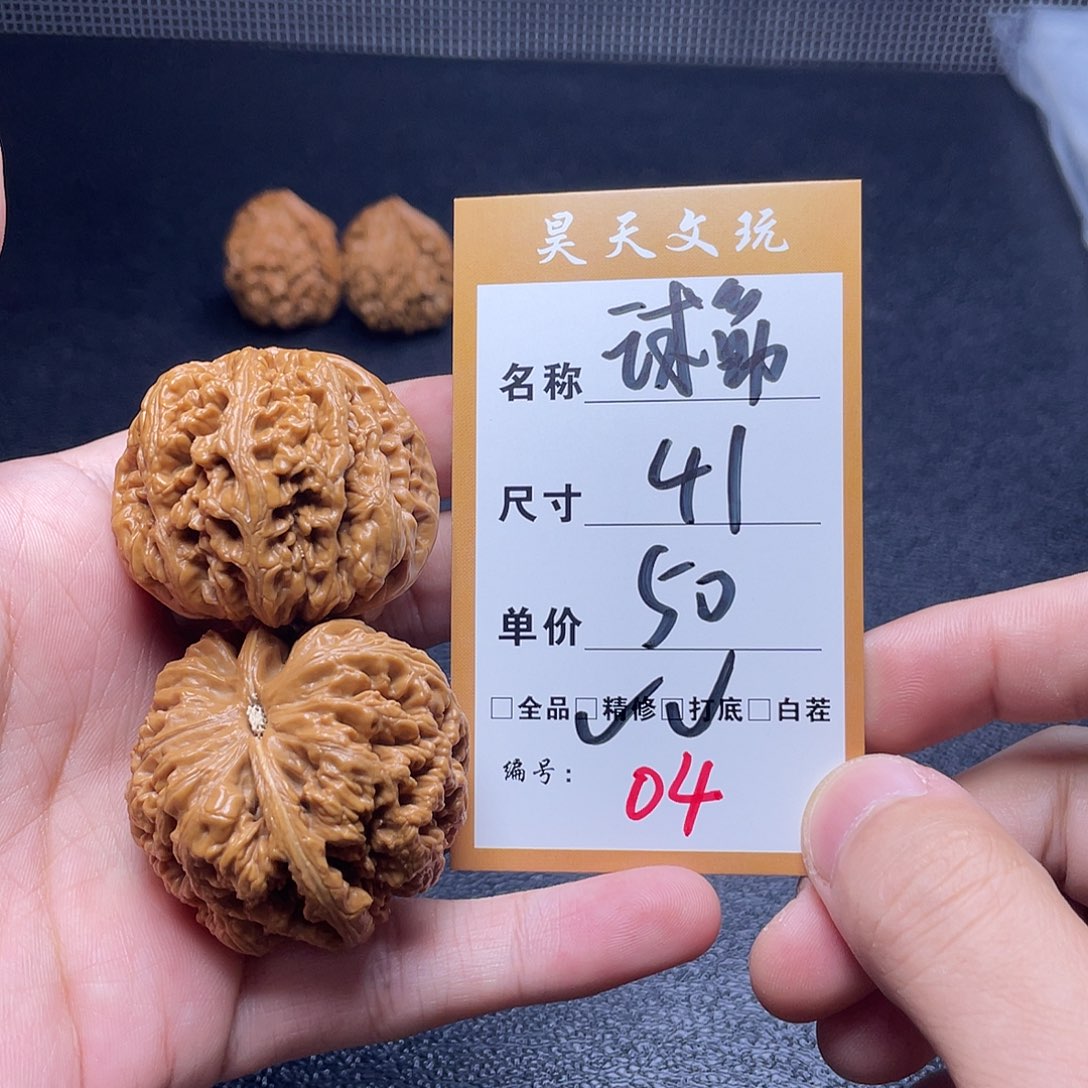 昊天文玩
名称 球狮
尺寸 41
单价 50
□全品□精修□打底□白茬
编号: 04